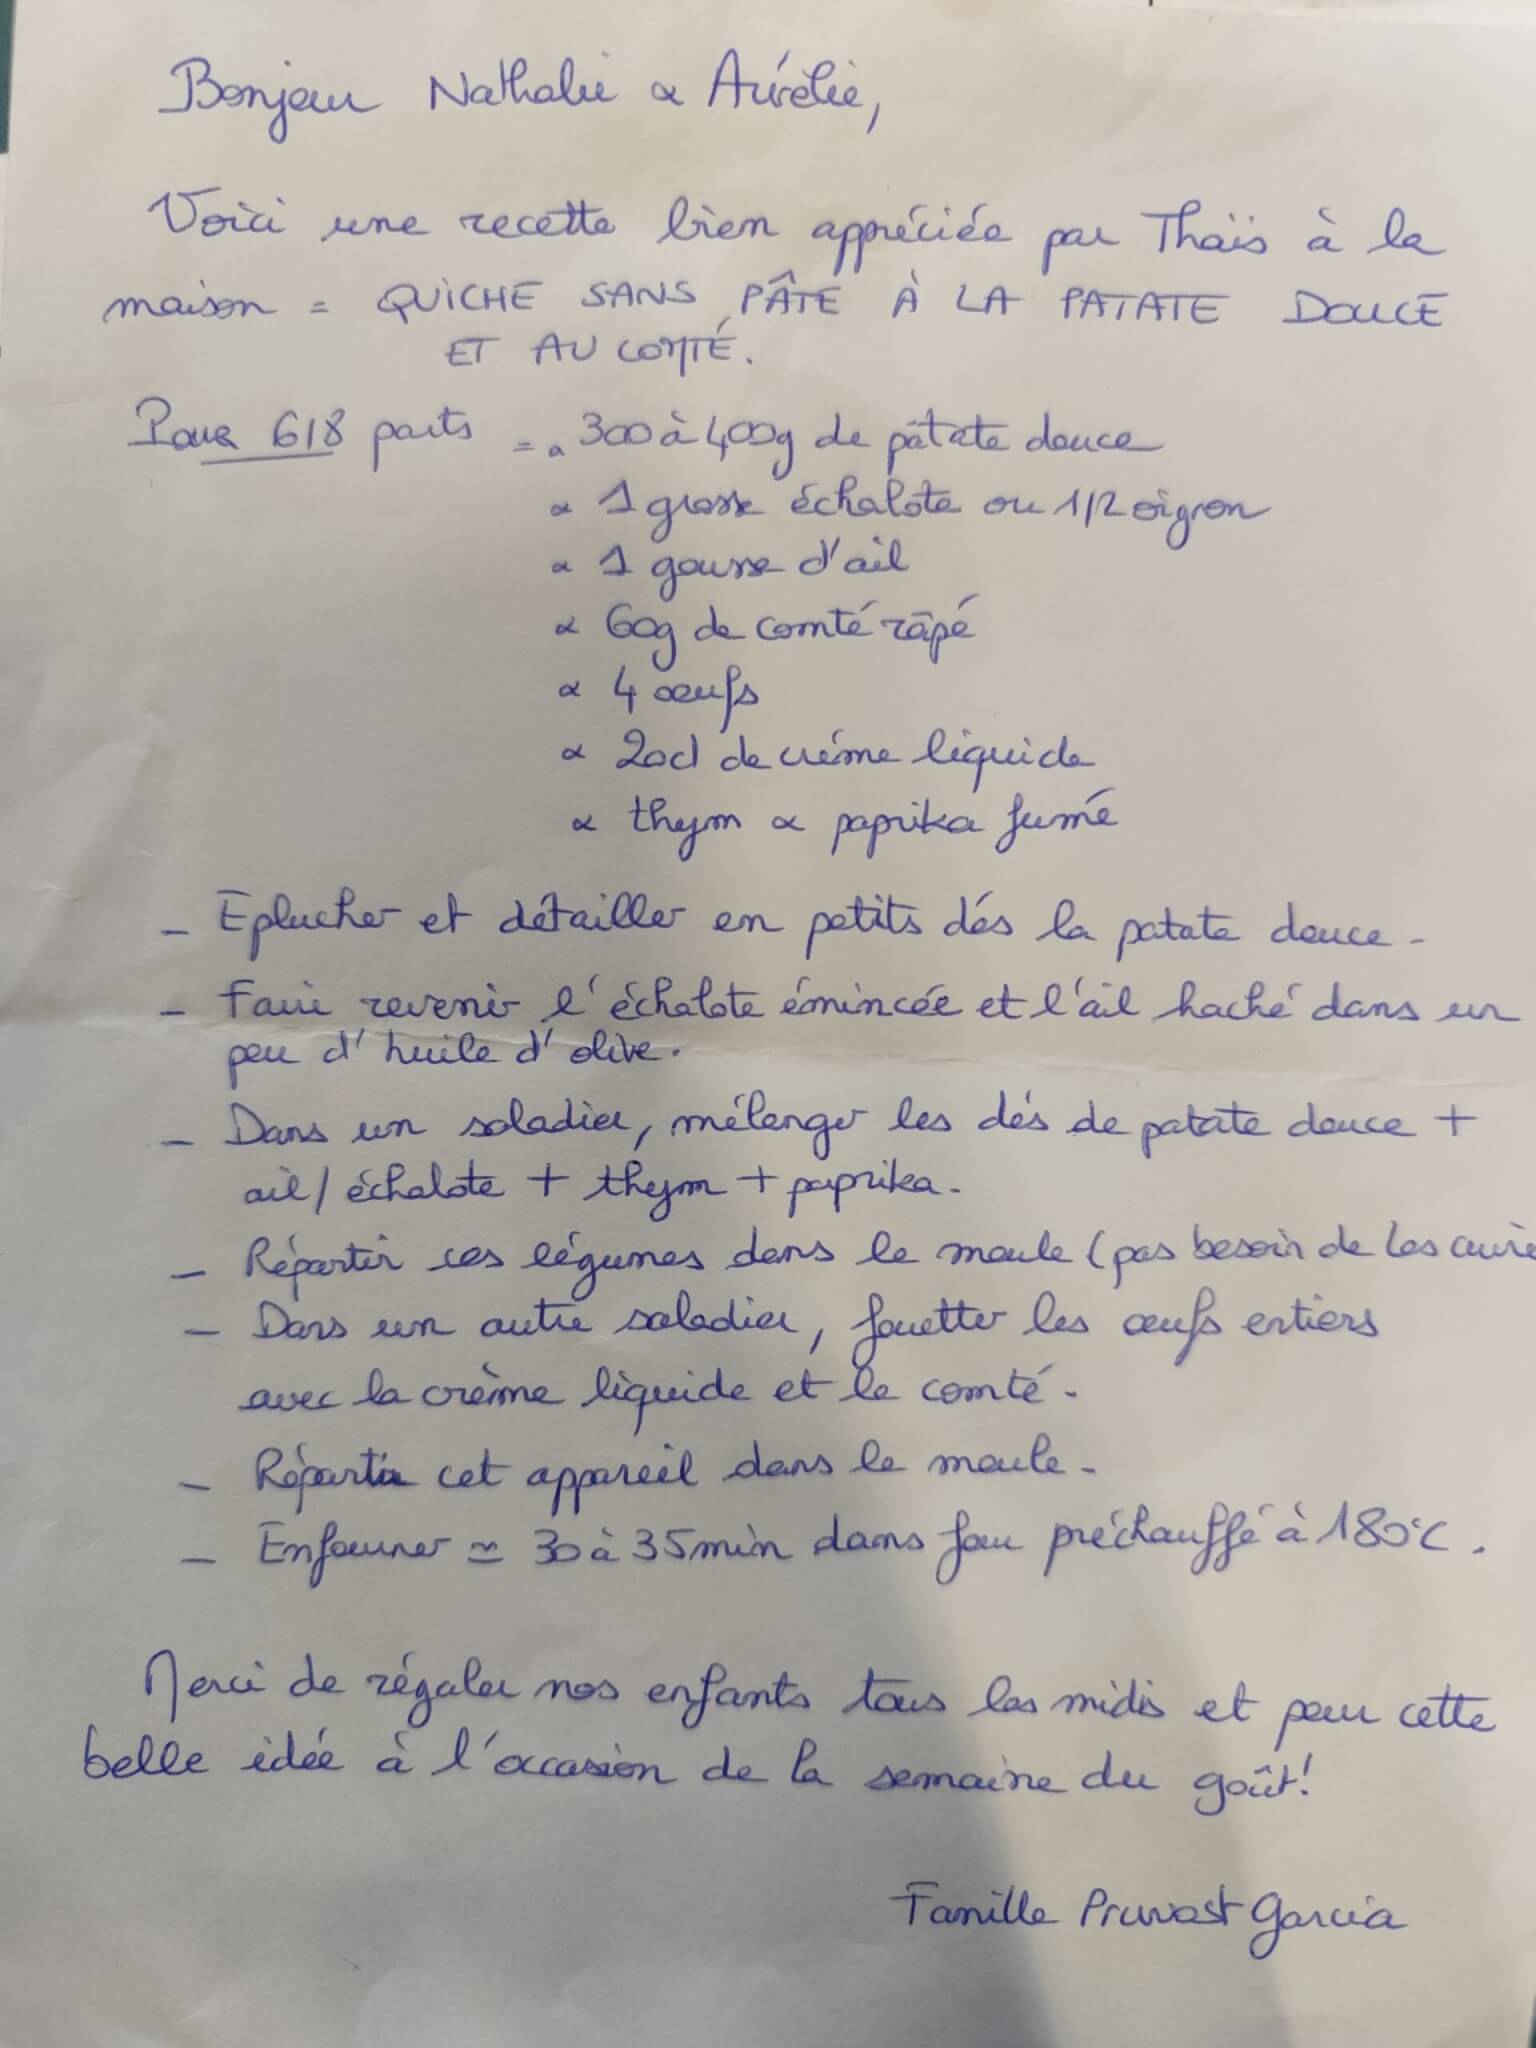 Bonjour Nathalie & Aurélie,
Voici une recette bien appréciée par Thaïs à la
maison = QUICHE SANS PÂTE À LA PATATE DOUCE
ET AU COMTÉ.
Pour 6/8 parts = & 300 à 400g de patate douce
& 1 grosse échalote ou 1/2 oignon
& 1 gousse d'ail
& 60g de comté râpé
& 4 œufs
& 20cl de crème liquide
& thym & paprika fumé
- Eplucher et détailler en petits dés la patate douce.
- Faire revenir l'échalote émincée et l'ail haché dans un
peu d'huile d'olive.
- Dans un saladier, mélanger les dés de patate douce +
ail/échalote + thym + paprika.
- Répartir ces légumes dans le moule (pas besoin de les cuire
- Dans un autre saladier, fouetter les œufs entiers
avec la crème liquide et le comté.
- Répartir cet appareil dans le moule.
- Enfourner ≃ 30 à 35min dans four préchauffé à 180°C.
Merci de régaler nos enfants tous les midis et pour cette
belle idée à l'occasion de la semaine du goût!
Famille Pruvost Garcia